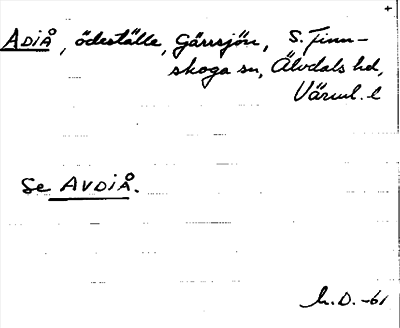 +
ADIÅ, ödeställe, Gärdsjön, S. Finn-
skoga sn, Älvdals hd,
Värml. l
Se AVDIÅ.
h. D. -61